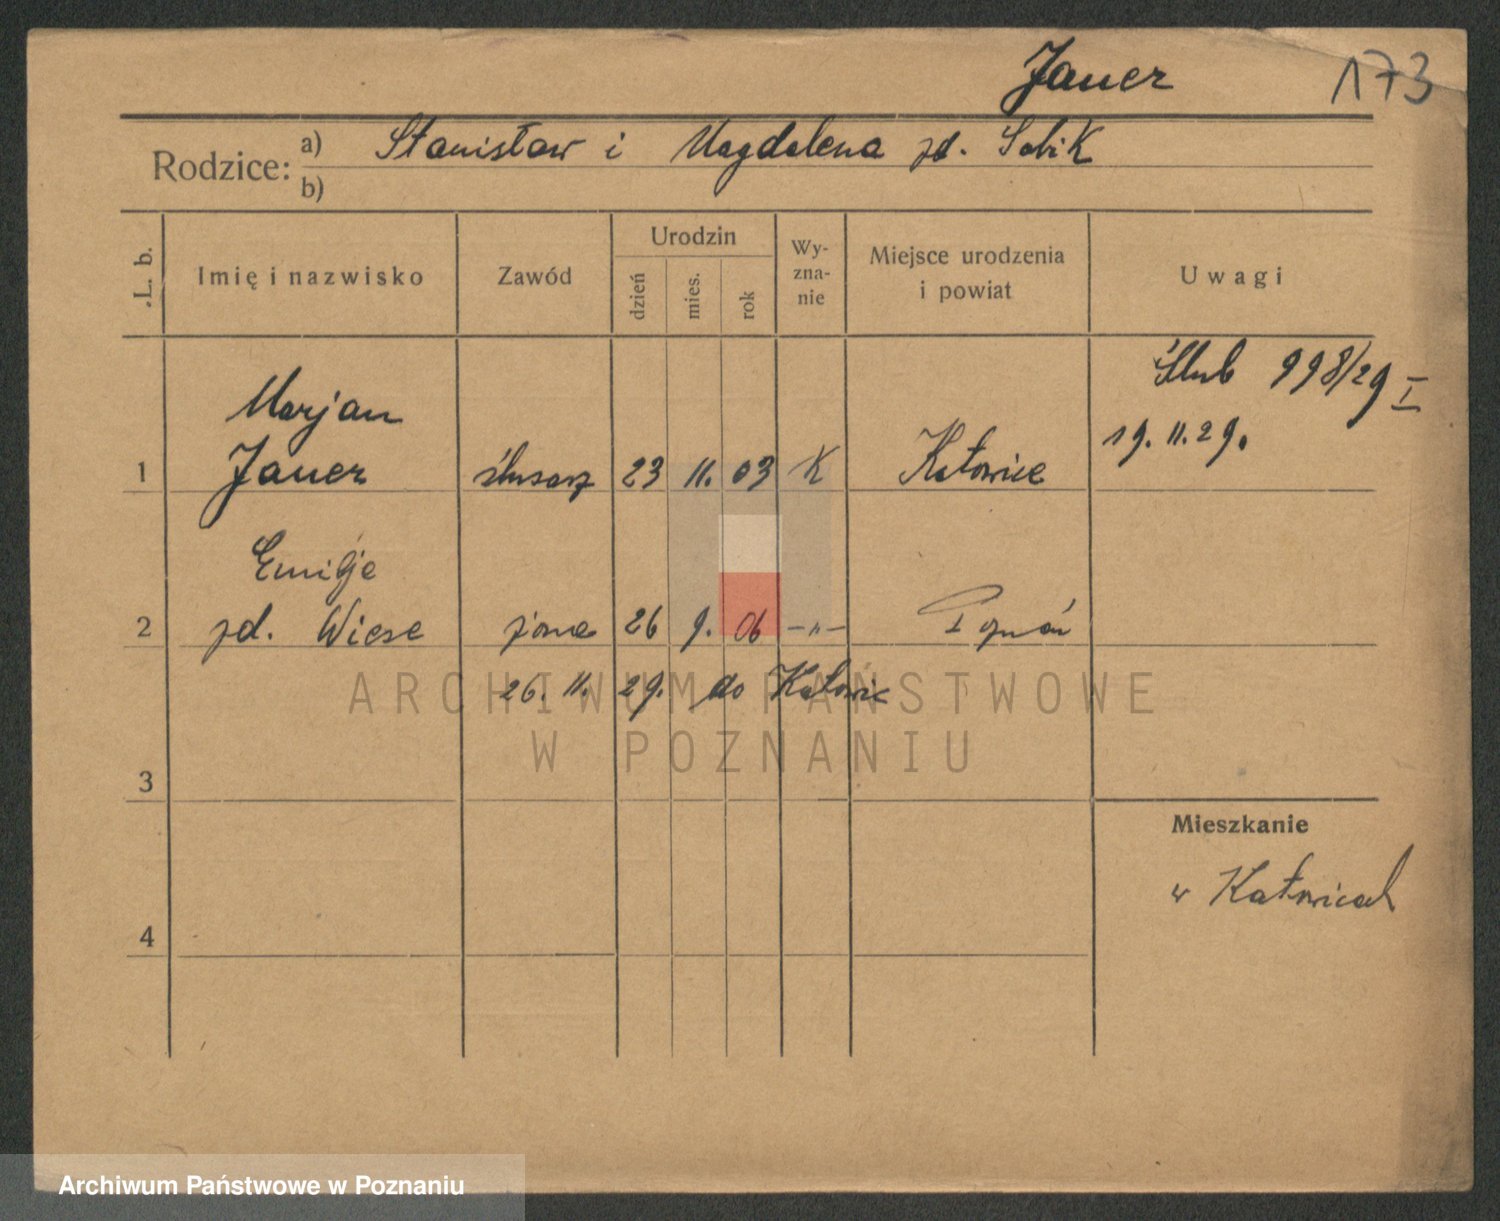 Janer 173
Rodzice: a) Stanisław i Magdalena zd. Sobik
b)
L. b. Imię i nazwisko Zawód Urodzin dzień mies. rok Wy-zna-nie Miejsce urodzenia i powiat Uwagi
Ślub 998/29 I
19. 11. 29.
Marjan
1 Janer ślusarz 23 11. 03 K Katowice
Emilje
2 zd. Wiese żona 26 9. 06 -"- Poznań
26. 11. 29. do Katowic
ARCHIWUM PAŃSTWOWE
W POZNANIU
3
Mieszkanie
w Katowicach
4
Archiwum Państwowe w Poznaniu